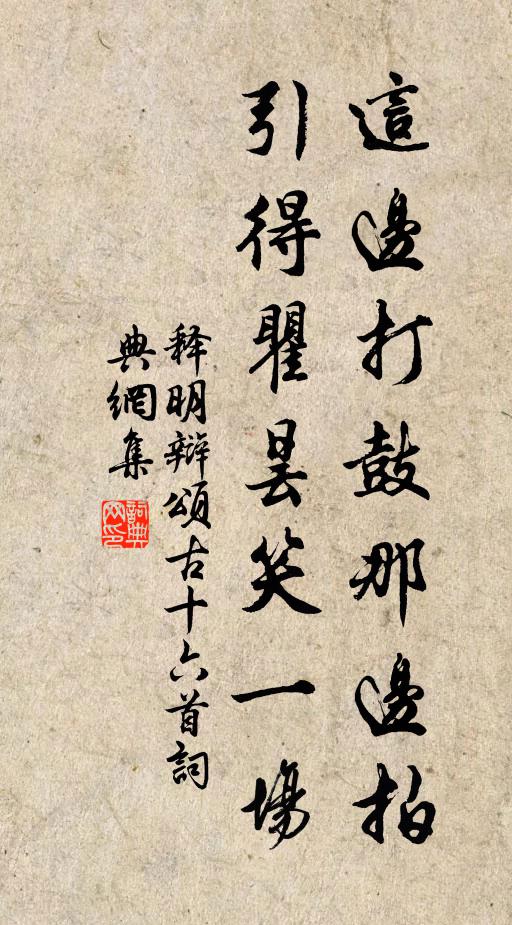 這邊打鼓那邊拍
引得瞿曇笑一場
释明辯頌古十六首詞
典網集
詞典
网印